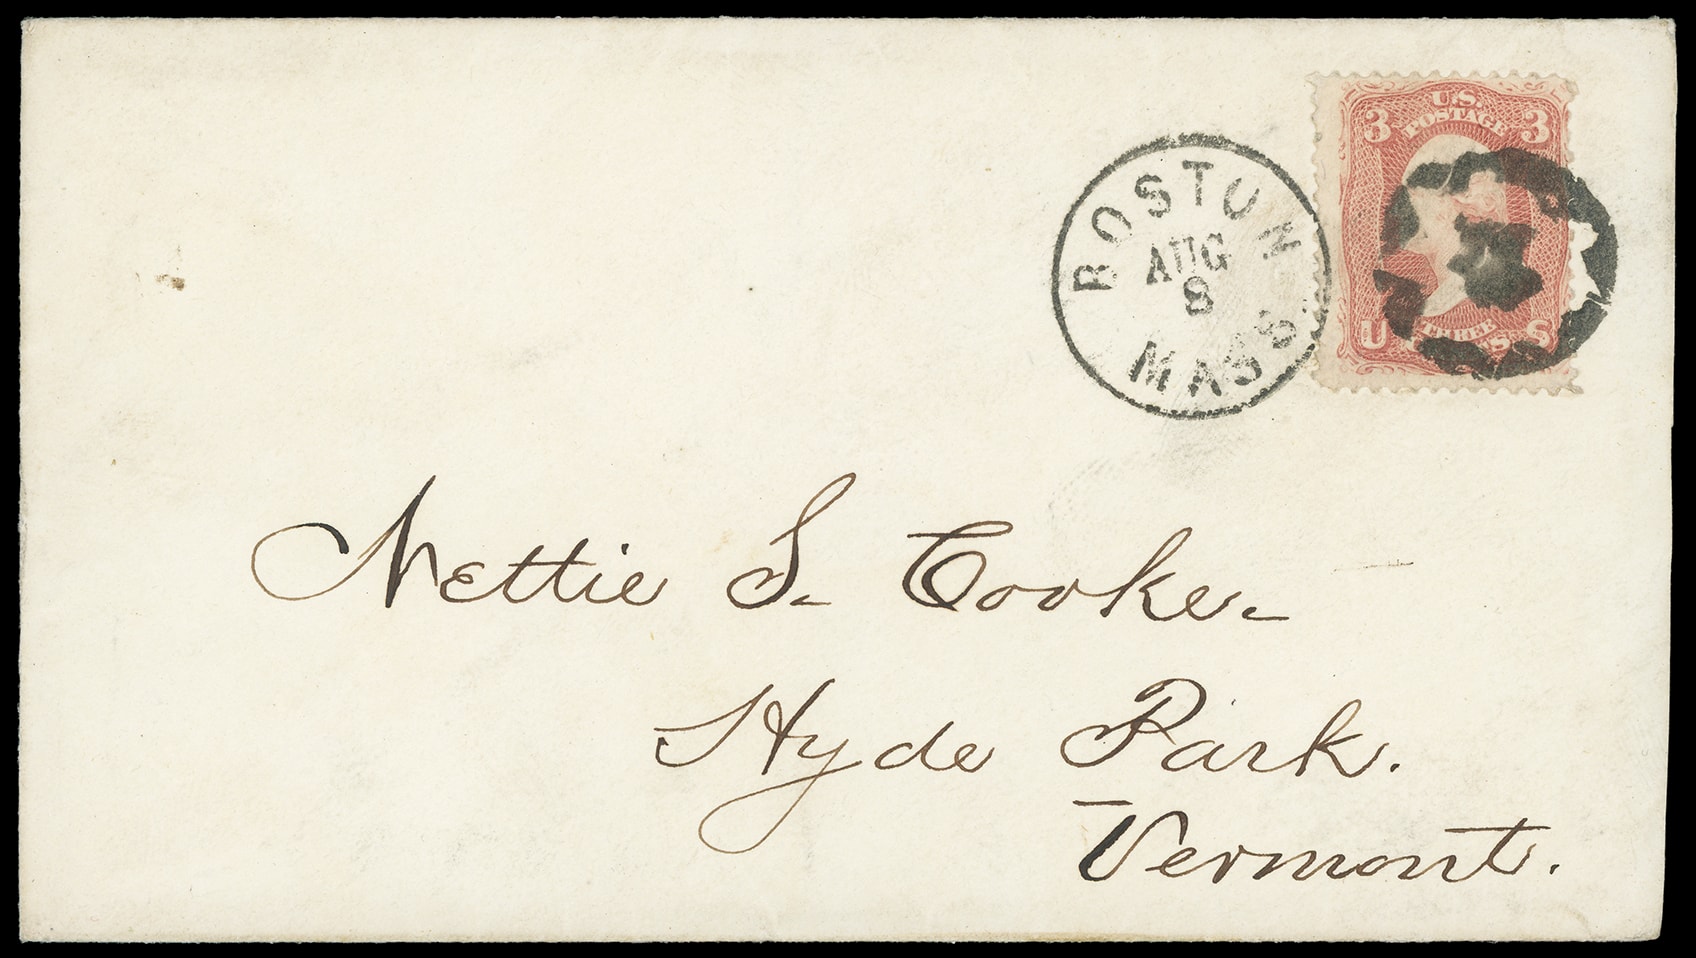 3 U.S. 3
POSTAGE
BOSTON
AUG
8
MASS
U THREE S
Nettie S. Cooke.
Hyde Park.
Vermont.